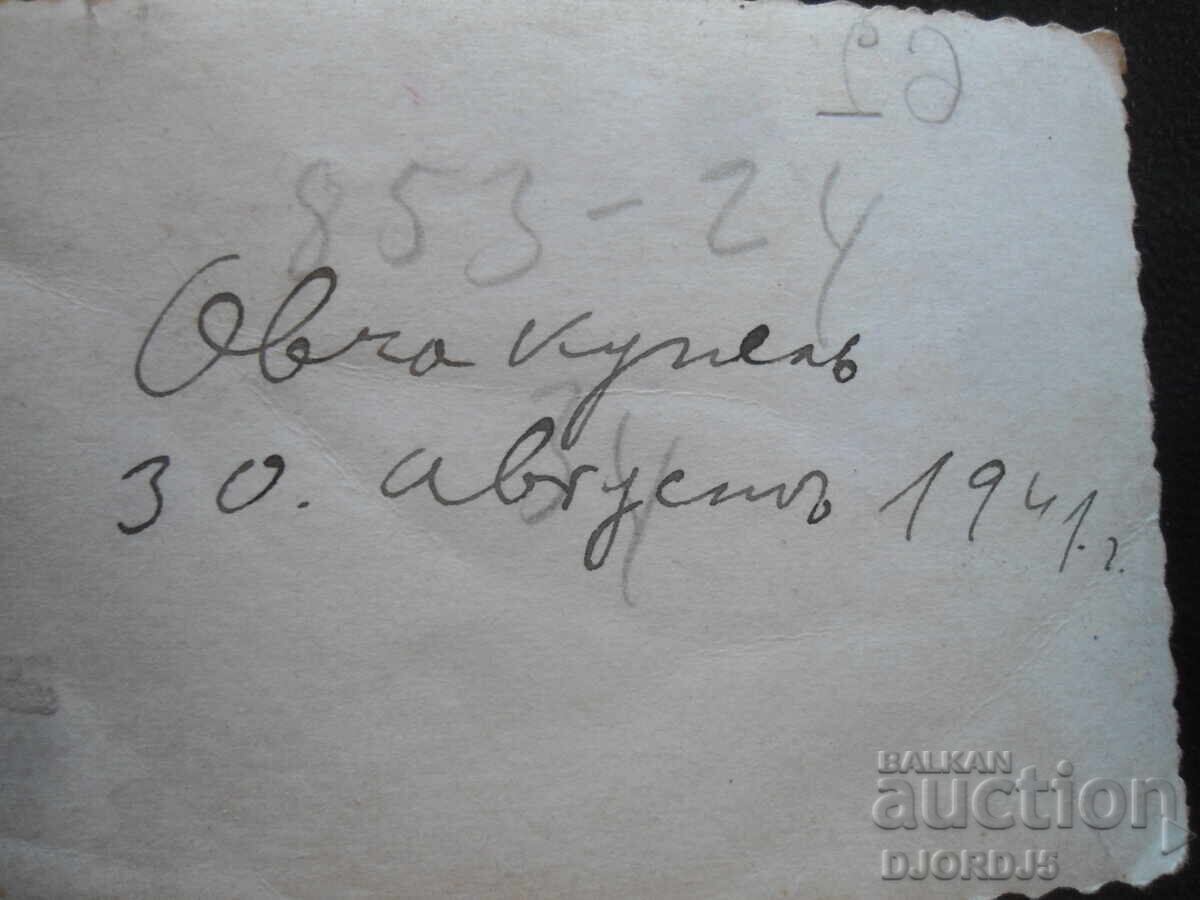 853-24
Овча купель
30. Августъ 1941.г.
34
BALKAN
auction
DJORDJ5